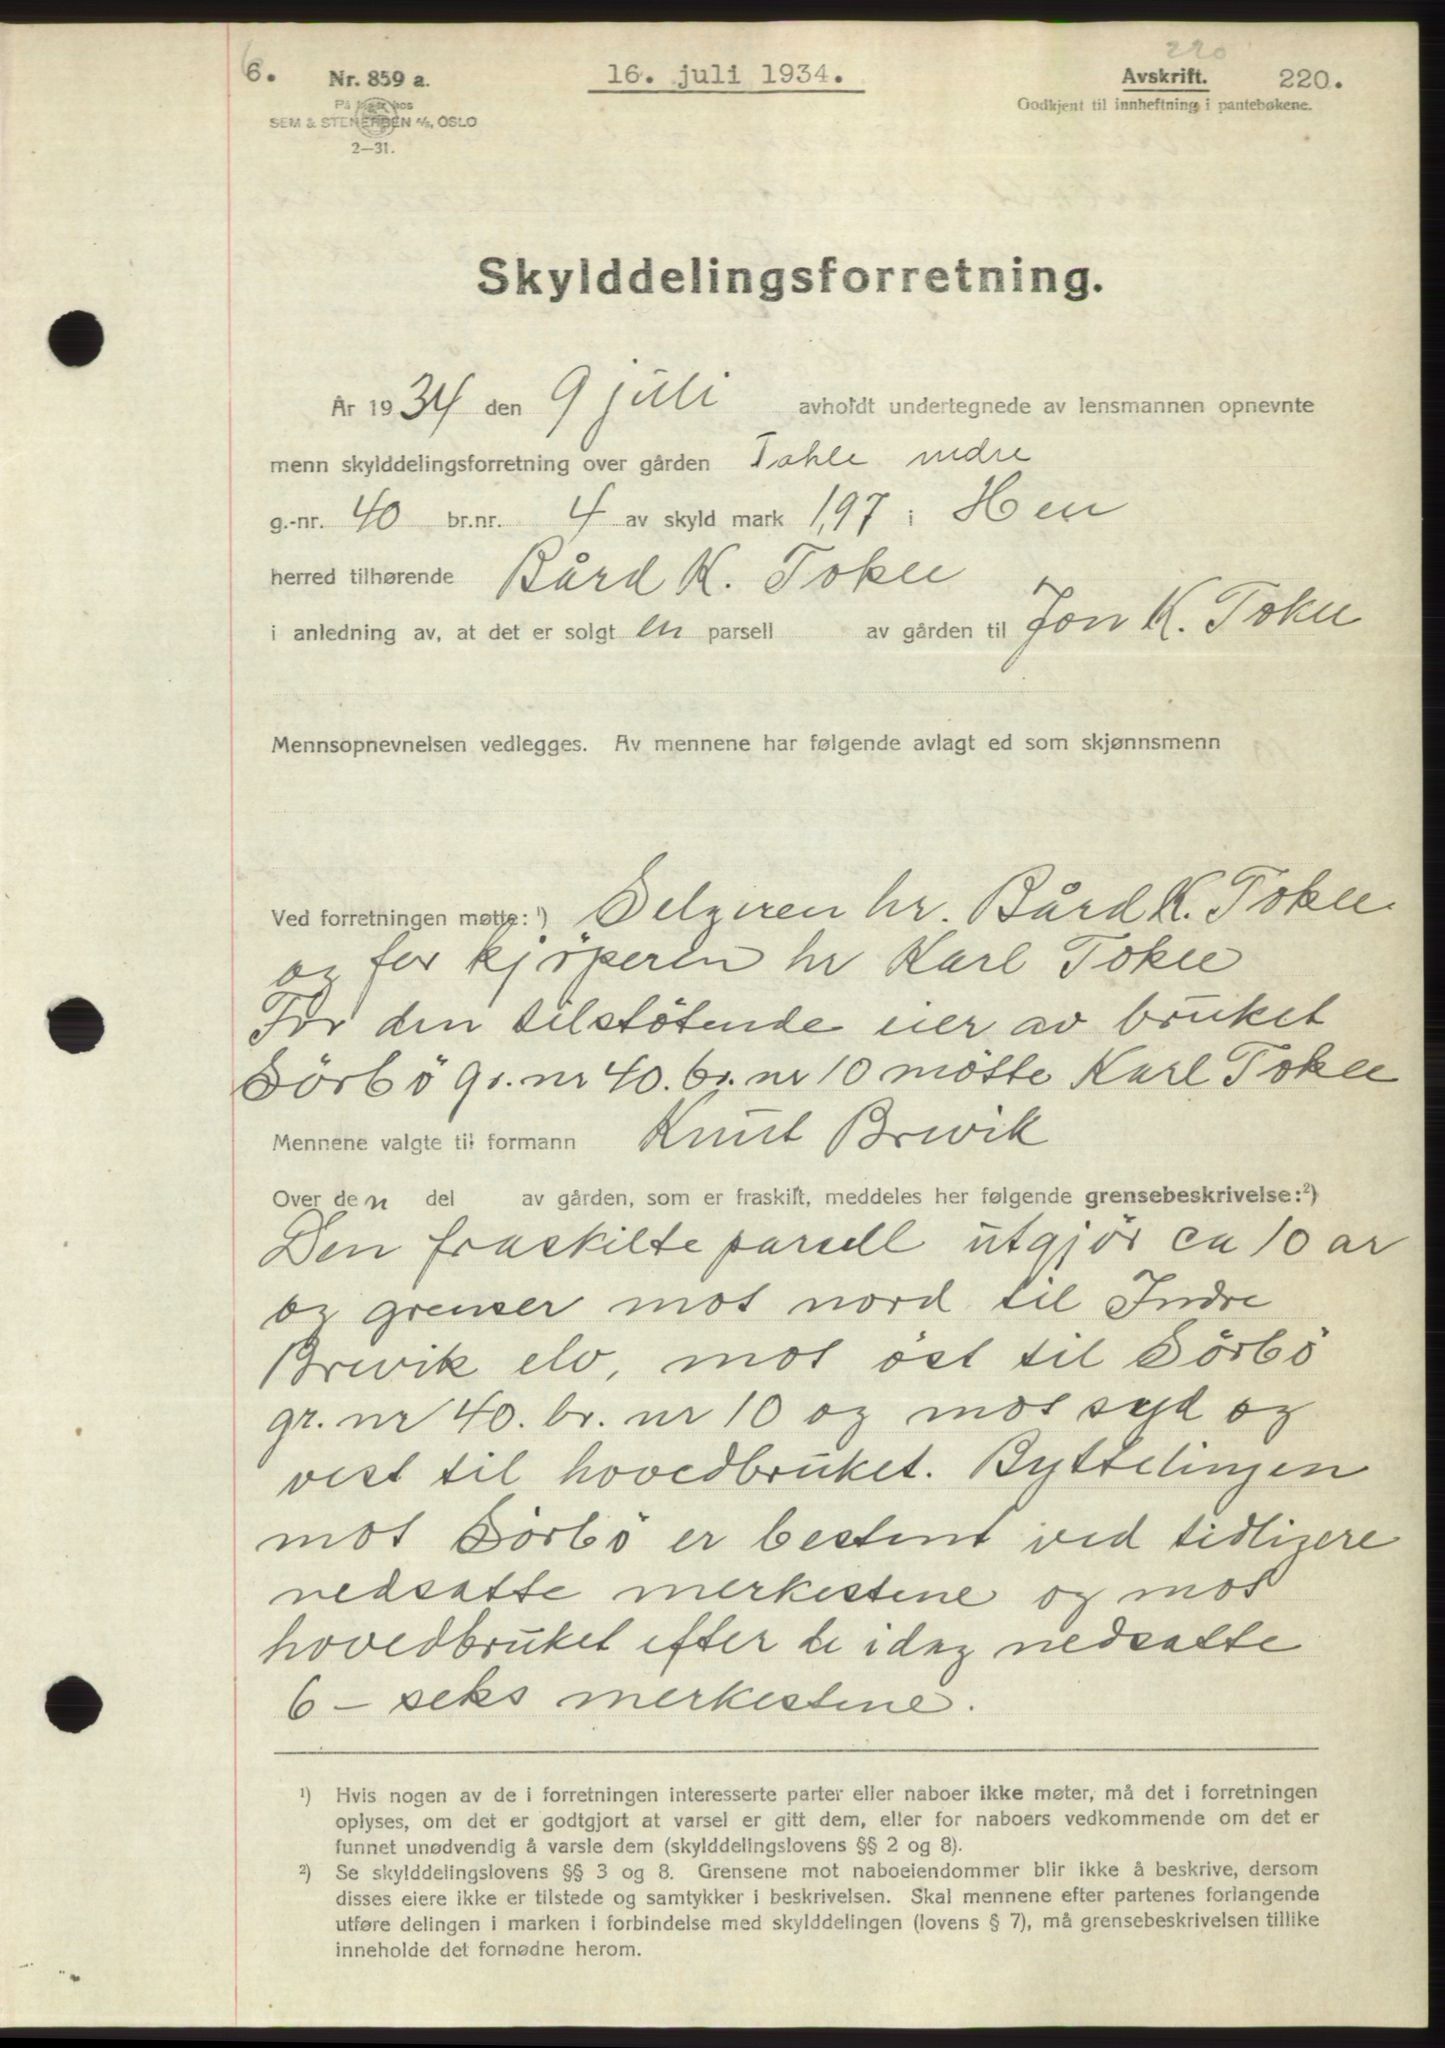 220
6. Nr. 859 a. 16. juli 1934. Avskrift. 220.
På lager hos Godkjent til innheftning i pantebøkene.
SEM & STENERSEN A/S, OSLO
2—31.
Skylddelingsforretning.
År 1934 den 9 juli avholdt undertegnede av lensmannen opnevnte
menn skylddelingsforretning over gården Tokle indre
g.-nr. 40 br.nr. 4 av skyld mark 1,97 i Hen
herred tilhørende Bård K. Tokle
i anledning av, at det er solgt en parsell av gården til Jon K. Tokle
Mennsopnevnelsen vedlegges. Av mennene har følgende avlagt ed som skjønnsmenn
Ved forretningen møtte: ¹) Selgeren hr. Bård K. Tokle
og for kjöperen hr Karl Tokle
For den tilstötende eier av bruket
Sörbö gr. nr 40. br. nr 10 mötte Karl Tokle
Mennene valgte til formann Knut Brevik
Over den del av gården, som er fraskilt, meddeles her følgende grensebeskrivelse: ²)
Den fraskilte parsell utgjör ca 10 ar
og grenser mot nord til Indre
Brevik elv, mot öst til Sörbö
gr. nr 40. br. nr 10 og mot syd og
vest til hovedbruket. Byttelingen
mot Sörbö er bestemt ved tidligere
nedsatte merkestene og mot
hovedbruket efter de idag nedsatte
6 – seks merkestene.
¹) Hvis nogen av de i forretningen interesserte parter eller naboer ikke møter, må det i forretningen
oplyses, om det er godtgjort at varsel er gitt dem, eller for naboers vedkommende om det er
funnet unødvendig å varsle dem (skylddelingslovens §§ 2 og 8).
²) Se skylddelingslovens §§ 3 og 8. Grensene mot naboeiendommer blir ikke å beskrive, dersom
disses eiere ikke er tilstede og samtykker i beskrivelsen. Skal mennene efter partenes forlangende
utføre delingen i marken i forbindelse med skylddelingen (lovens § 7), må grensebeskrivelsen tillike
inneholde det fornødne herom.